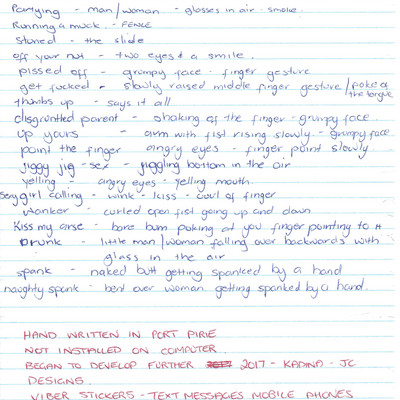 Partying - man/woman - glasses in air - smoke.
Running a muck - FENCE
Stoned - the slide
off your nut - two eyes & a smile.
pissed off - grumpy face - finger gesture
get fucked - slowly raised middle finger gesture/poke of the tongue
thumbs up - says it all
disgruntled parent - shaking of the finger - grumpy face.
up yours - arm with fist rising slowly - grumpy face
point the finger angry eyes - finger point slowly
jiggy jig - sex - jiggling bottom in the air
yelling - angry eyes - yelling mouth.
sexy girl calling - wink - kiss - curl of finger
wanker - curled open fist going up and down
Kiss my arse - bare bum poking at you finger pointing to it
DRUNK - little man/woman falling over backwards with
glass in the air
spank - naked butt getting spanked by a hand
naughty spank - bent over woman getting spanked by a hand.
HAND WRITTEN IN PORT PIRIE
NOT INSTALLED ON COMPUTER.
BEGAN TO DEVELOP FURTHER 2017 - KADINA - JC
DESIGNS.
VIBER STICKERS - TEXT MESSAGES MOBILE PHONES